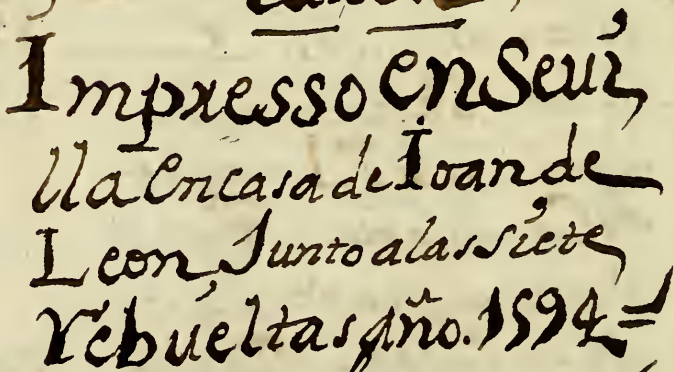 Impresso en Seui
lla en casa de Ioan de
Leon, Junto a las siete
rebueltas año. 1594=